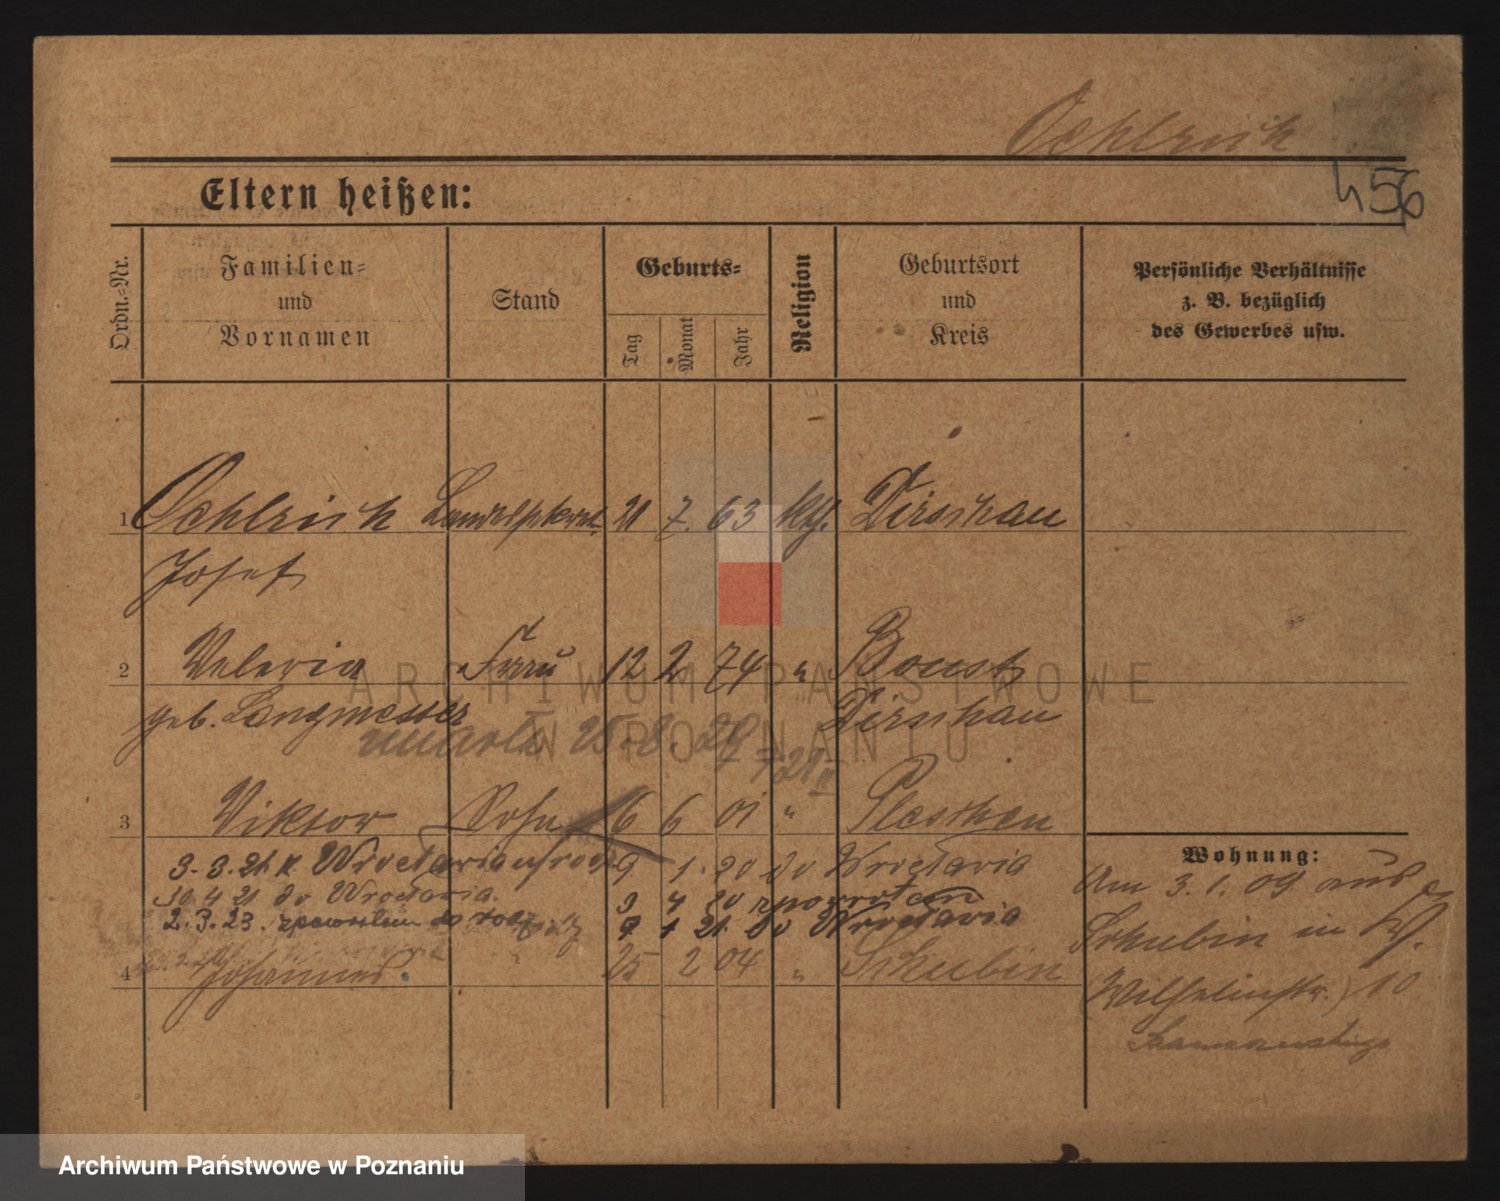 Oehlrich
Eltern heißen:
456
Ordn.-Nr.
Familien-
und
Vornamen
Stand
Geburts-
Tag
Monat
Jahr
Religion
Geburtsort
und
Kreis
Persönliche Verhältnisse
z. B. bezüglich
des Gewerbes usw.
1 Oehlrich 21 7. 63 kth. Dirschau
Josef
2 Valeria Frau 12 2 74 " 
geb. Langmesser Dirschau
umarła 25.8.20
3 Viktor Sohn 16 6 01 " Pleschen
3.3.21 z Wrocławia 9 1. 20 do Wrocławia
10 4 21 do Wrocławia. 9 4 20 z powrotem
2.3.23. z powrotem do 9 1 21. do Wrocławia
4 Johannes. 25 2 04 " Schubin
Wohnung:
Am 3. 1. 09 aus
Schubin in
Wilhelmstr. 10
ARCHIWUM PAŃSTWOWE
W POZNANIU
Archiwum Państwowe w Poznaniu